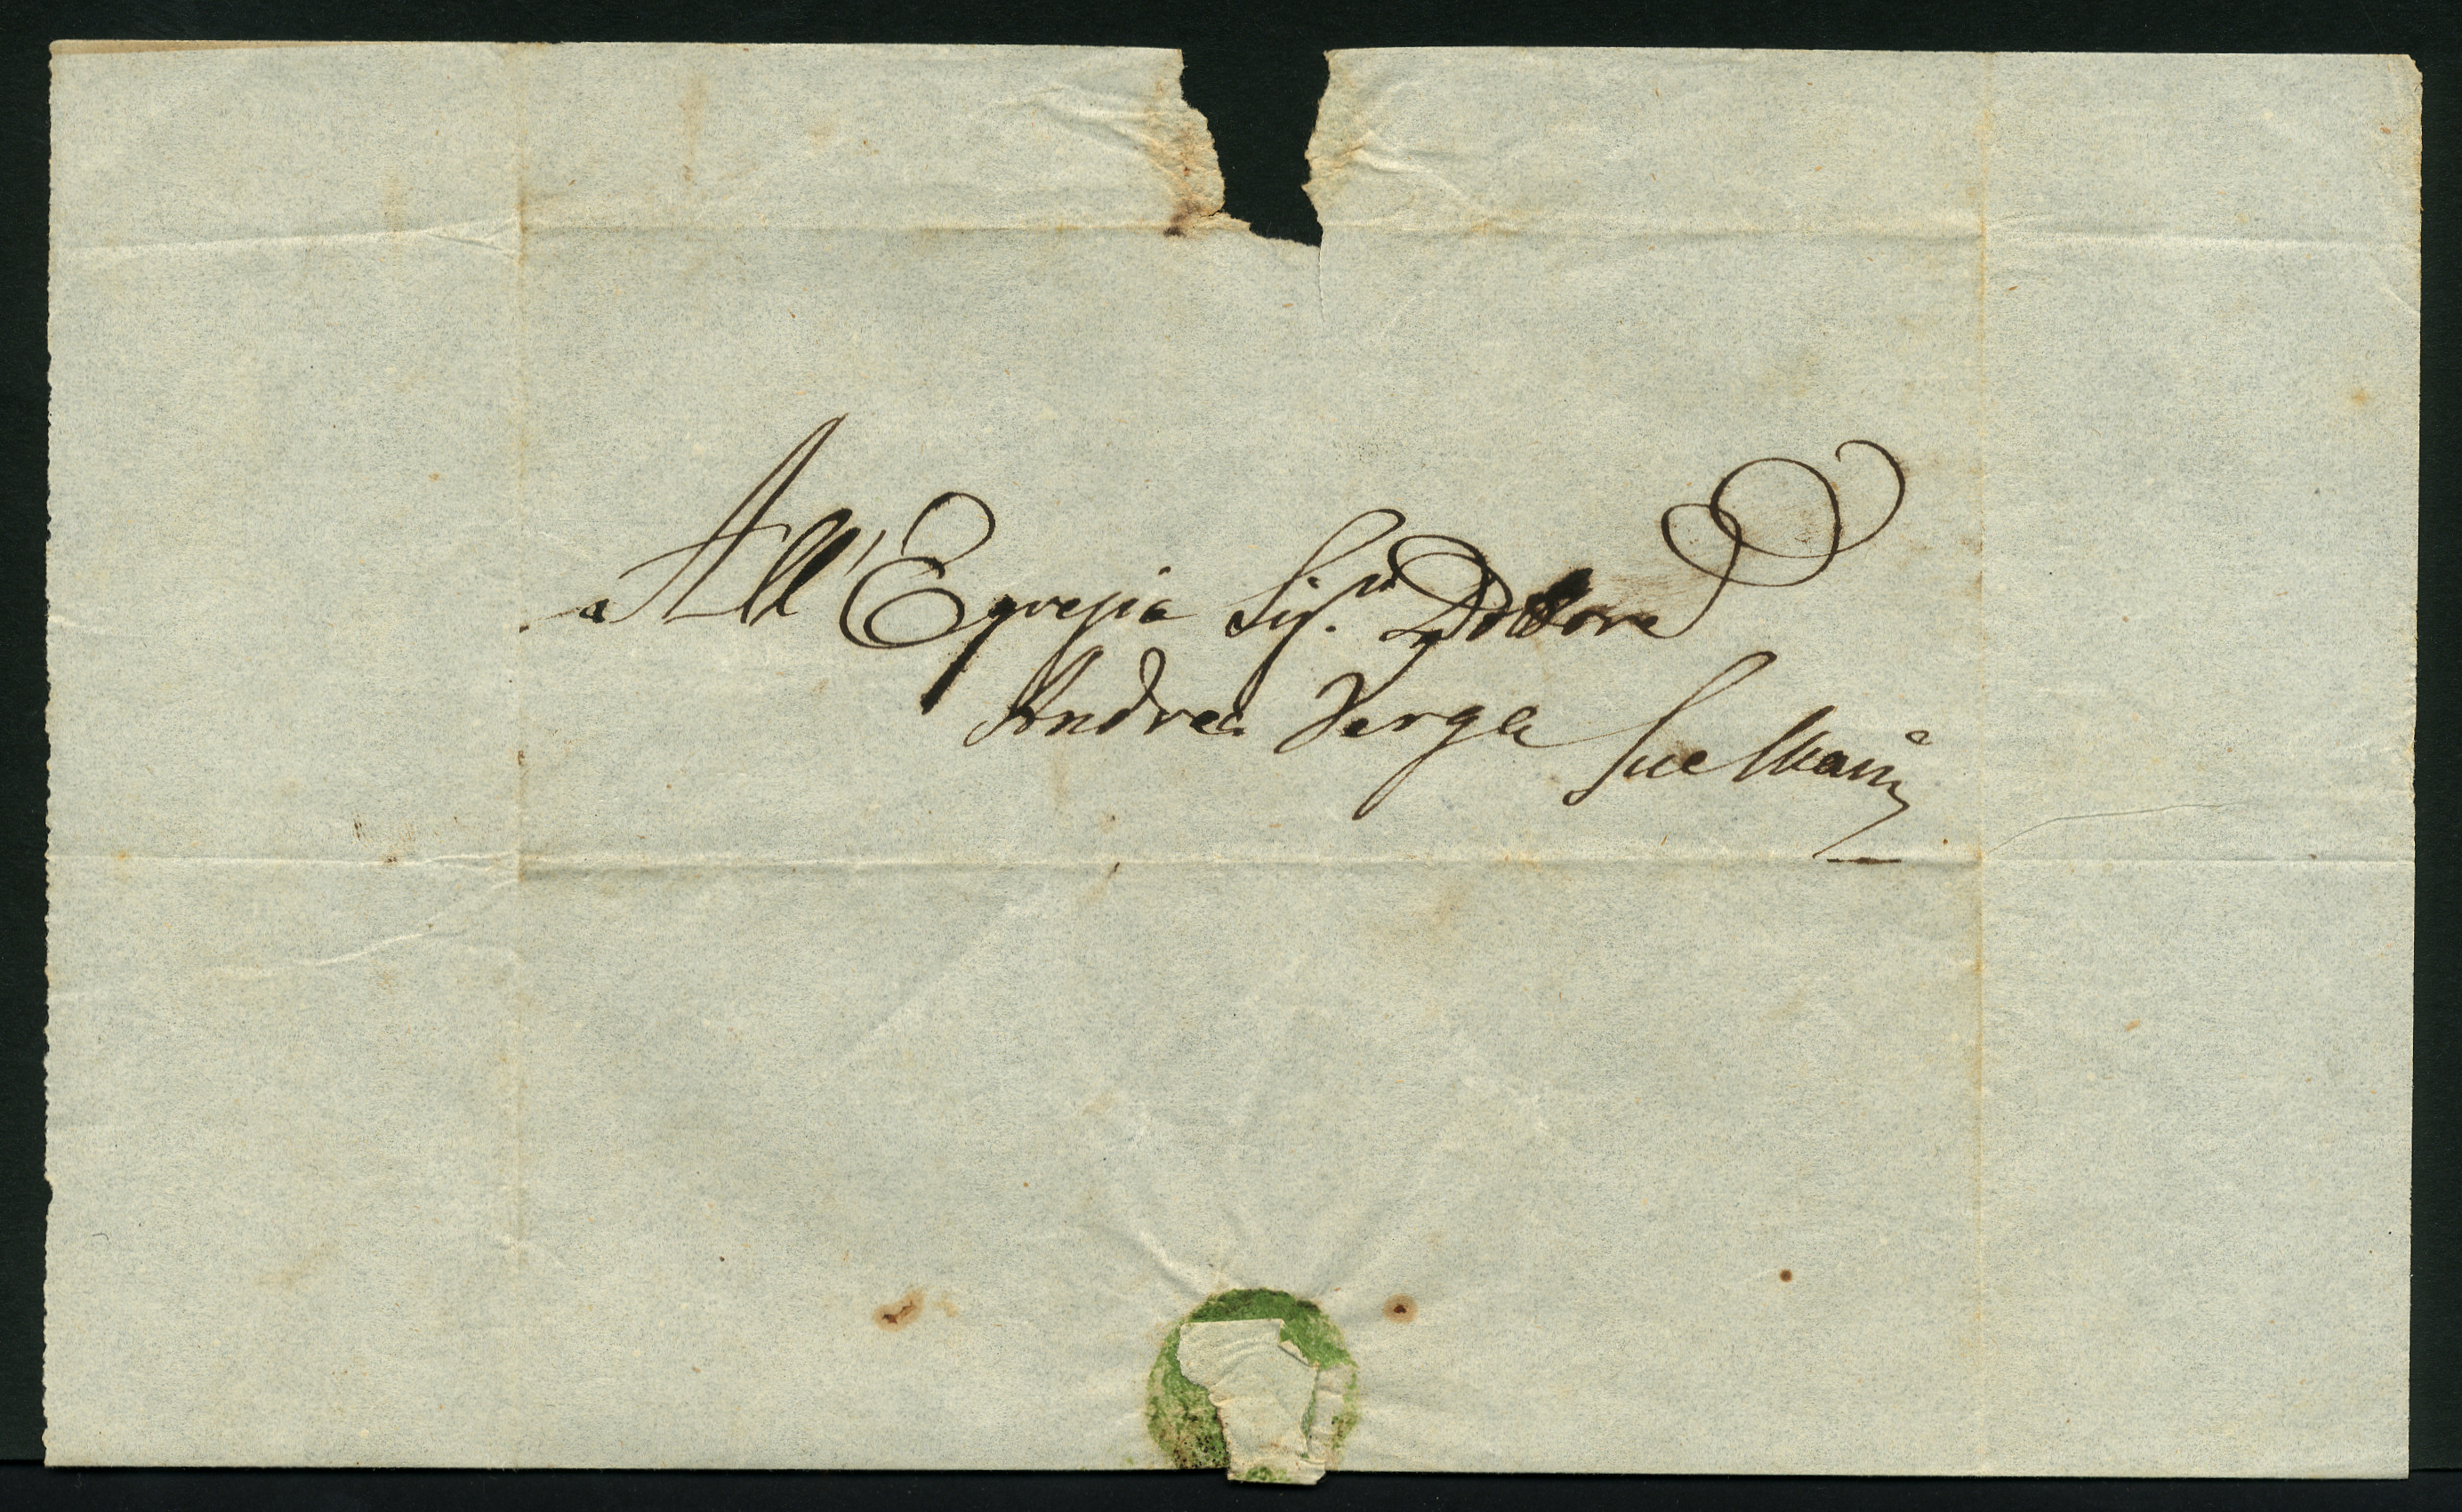 All'Egregio Sigr. Dottore
Andrea Verga
Sue Mani